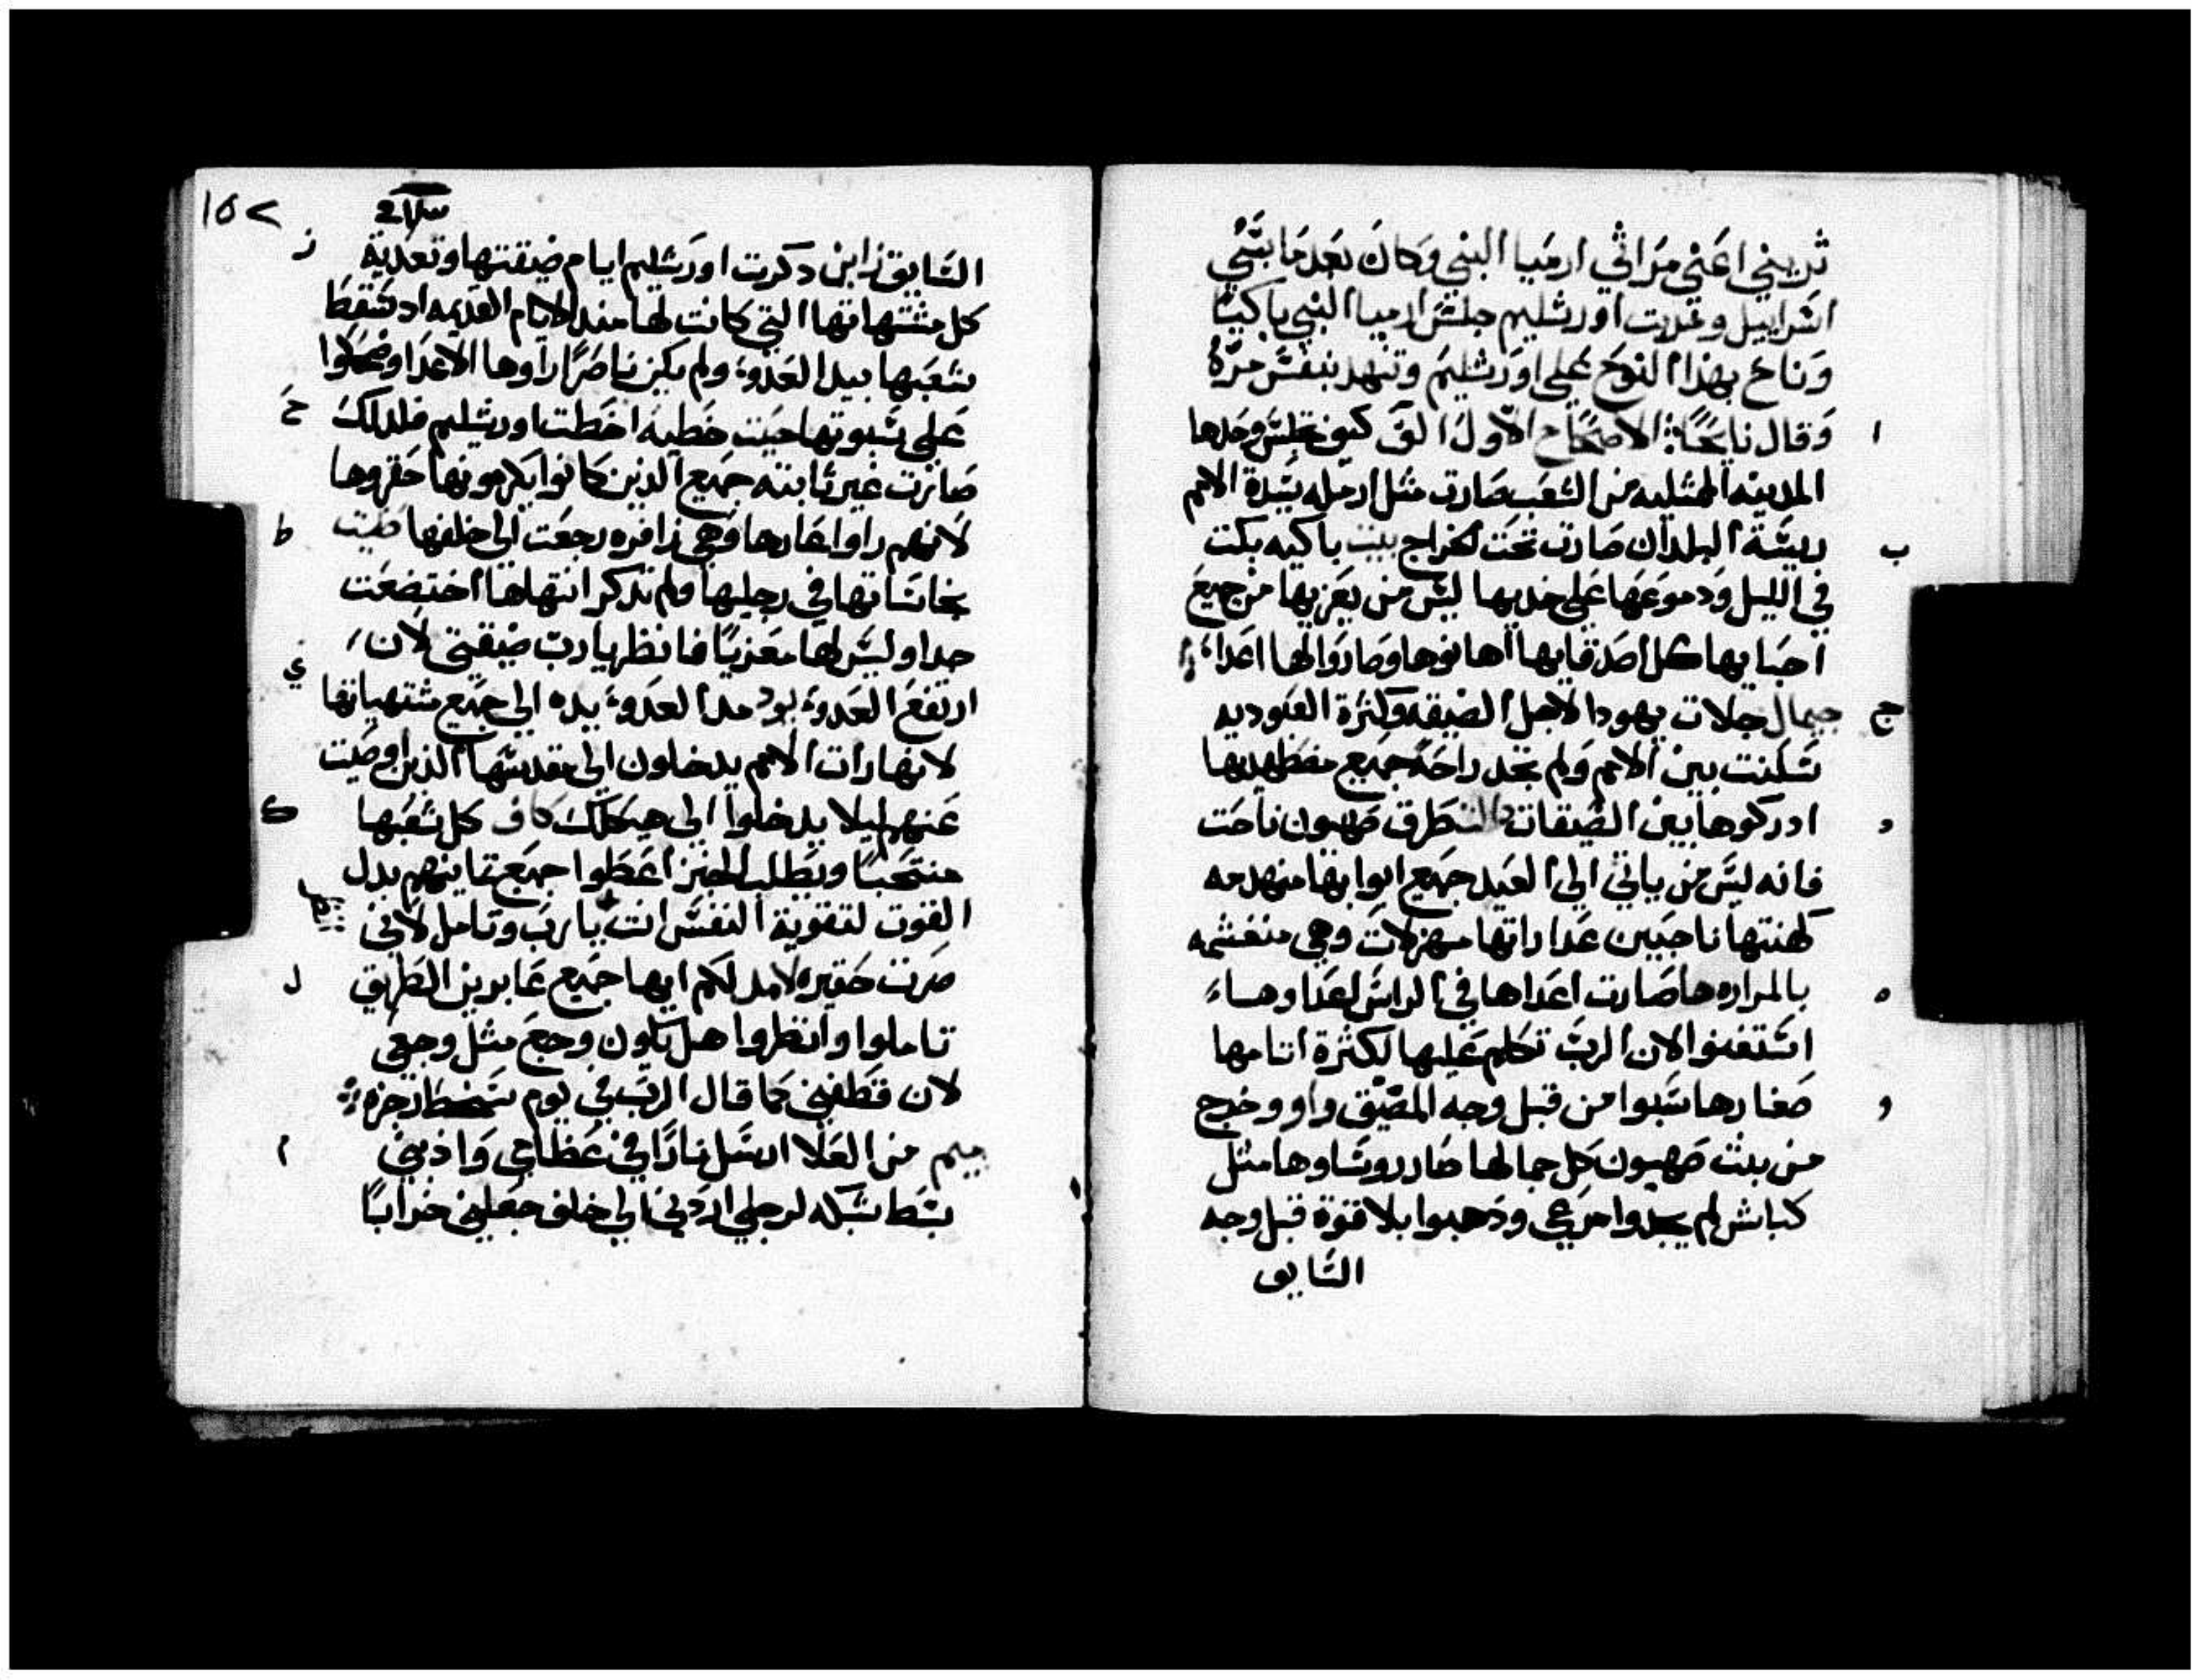 ثريني اعني مراثي ارميا النبي وكان بعد ما سبي
اسراييل وخربت اورشليم جلس ارميا النبي باكيا
وناح بهذا النوح علي اورشليم وتنهد بنفس مرة
ا وقال نايحًا الاصحاح الاول الف كيف تجلس وحدها
المدينه الممتليه من الشعب صارت مثل ارمله سيدة الامم
ب ريسة البلدان صارت تحت الخراج بيت باكيه بكت
في الليل ودموعها علي خديها ليس من يعزيها من جميع
احبايها كل اصدقايها اهانوها وصاروا لها اعداء
ج جيمال جلات يهودا لاجل الضيقه وكثرة العبوديه
سكنت بين الامم ولم تجد راحة جميع مضطهديها
د ادركوها بين الضيقات دالت طرق صهيون ناحت
فانه ليس من ياتي الي العيد جميع ابوابها منهدمه
كهنتها ناحبين عداراتها مهزولات وهي منغشمه
ه بالمراره ها صارت اعداها في الراس اعدا وهساء
استغنوا لان الرب تكلم عليها لكثرة اتامها
و صغارها سبوا من قبل وجه المضيق واو وخرج
من بنت صهيون كل جمالها صار روساوها مثل
كباش لم يجدوا مرعي ودهبوا بلا قوة قبل وجه
السايق
١٥٢
ز السايق زاين دكرت اورشليم ايام ضيقتها وتعدية
كل مشتهاتها التي كانت لها مند الايام القديمه اد سقط
شعبها بيد العدوة ولم يكن ناصرًا راوها الاعدا وضحكوا
ح علي سبوتها حيت خطيه اخطت اورشليم فلدلك
صارت غير ثابته جميع الذين كانوا يكرمونها حقروها
ط لانهم راوا عارها وهي زافره رجعت الي خلفها طيت
نجاساتها في رجليها ولم تدكر انتهاها اختضعت
جدا وليس لها معزيًا فانظر يا رب ضيقتي لان
ي ارتفع العدوة يود مد العدوة يده الي جميع مشتهياتها
لانها رات الامم يدخلون الي مقدسها الذين اوصيت
ك عنهم ليلا يدخلوا الي هيكلك كاف كل شعبها
منتحبًا ويطلب الخبز اعطوا جميع تماينهم بدل
القوت لتقوية النفس انت يا رب وتامل لاني
ل صرت حقيره لامد لكم ايها جميع عابرين الطريق
تاملوا وانظروا هل يكون وجع مثل وجعي
لان قطفني كما قال الرب في يوم سخط رجزه
م ميم من العلا ارسل نارًا في عظامي واذبني
بسط شبكه لرجلي اردني الي خلف جعلني خرابًا